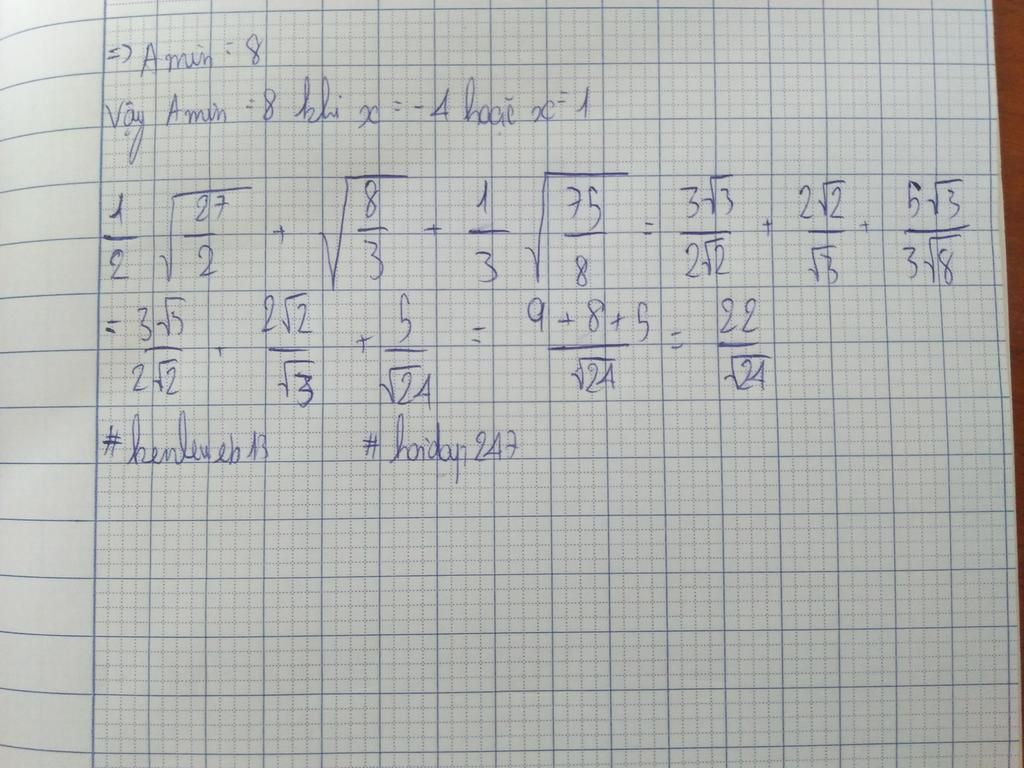 => A min = 8
Vậy A min = 8 khi x = -4 hoặc x = 1
1/2 √(27/2) + √(8/3) + 1/3 √(75/8) = 3√3/2√2 + 2√2/√3 + 5√3/3√8
= 3√3/2√2 + 2√2/√3 + 5/√24 = 9+8+5/√24 = 22/√24
#hoidap247